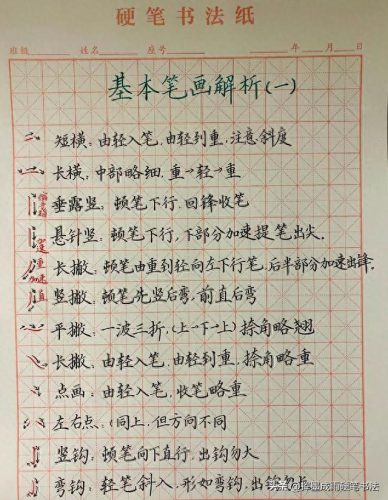 硬笔书法纸
班级 姓名 座号 年 月 日
基本笔画解析(一)
短横:由轻入笔,由轻到重,注意斜度
长横:中部略细,重→轻→重
垂露竖:顿笔下行,回锋收笔
悬针竖:顿笔下行,下部分加速提笔出尖。
长撇:顿笔由重到径向左下行笔,后半部分加速出锋。
竖撇:顿笔先竖后弯,前直后弯
平撇:一波三折,(上→下→上)捺角略翘
长撇:由轻入笔,由轻到重,捺角略重
点画:由轻入笔,收笔略重
左右点:(同上,但方向不同
竖钩:顿笔向下直行,出钩勿大
弯钩:轻笔斜入,形如弯钩,出钩勿长